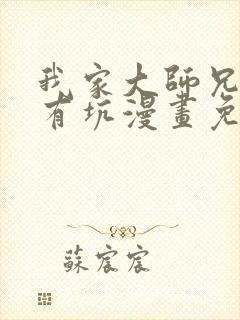 我家大師兄
有坑漫畫免
蘇宸宸